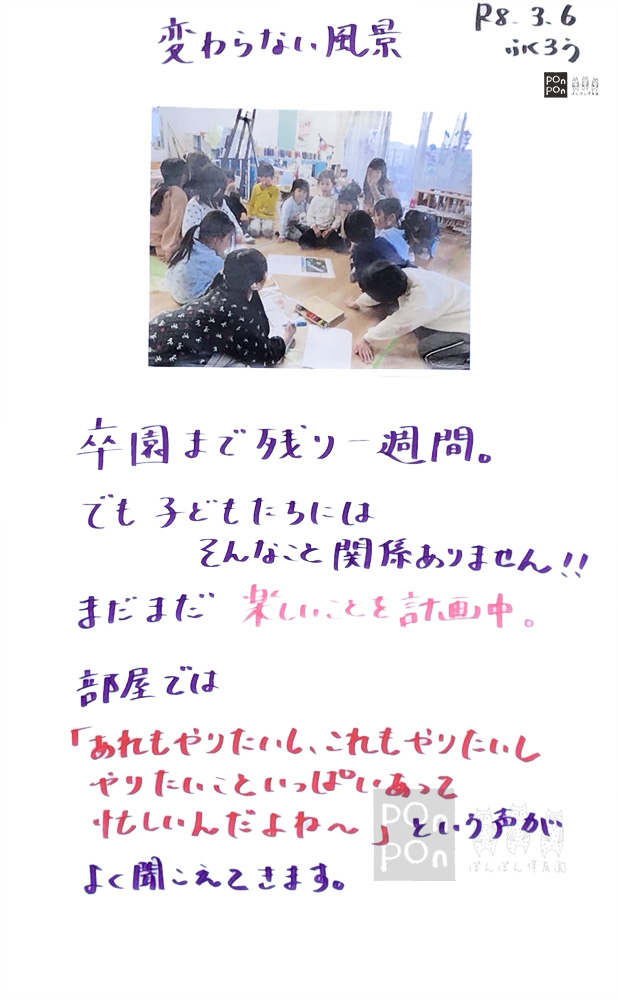 変わらない風景
R8.3.6
ふくろう
pon
pon
卒園まで残り一週間。
でも子どもたちには
そんなこと関係ありません!!
まだまだ 楽しいことを計画中。
部屋では
「あれもやりたいし、これもやりたいし
やりたいこといっぱいあって
忙しいんだよね〜」という声が
よく聞こえてきます。
pon
pon
ぽんぽん保育園